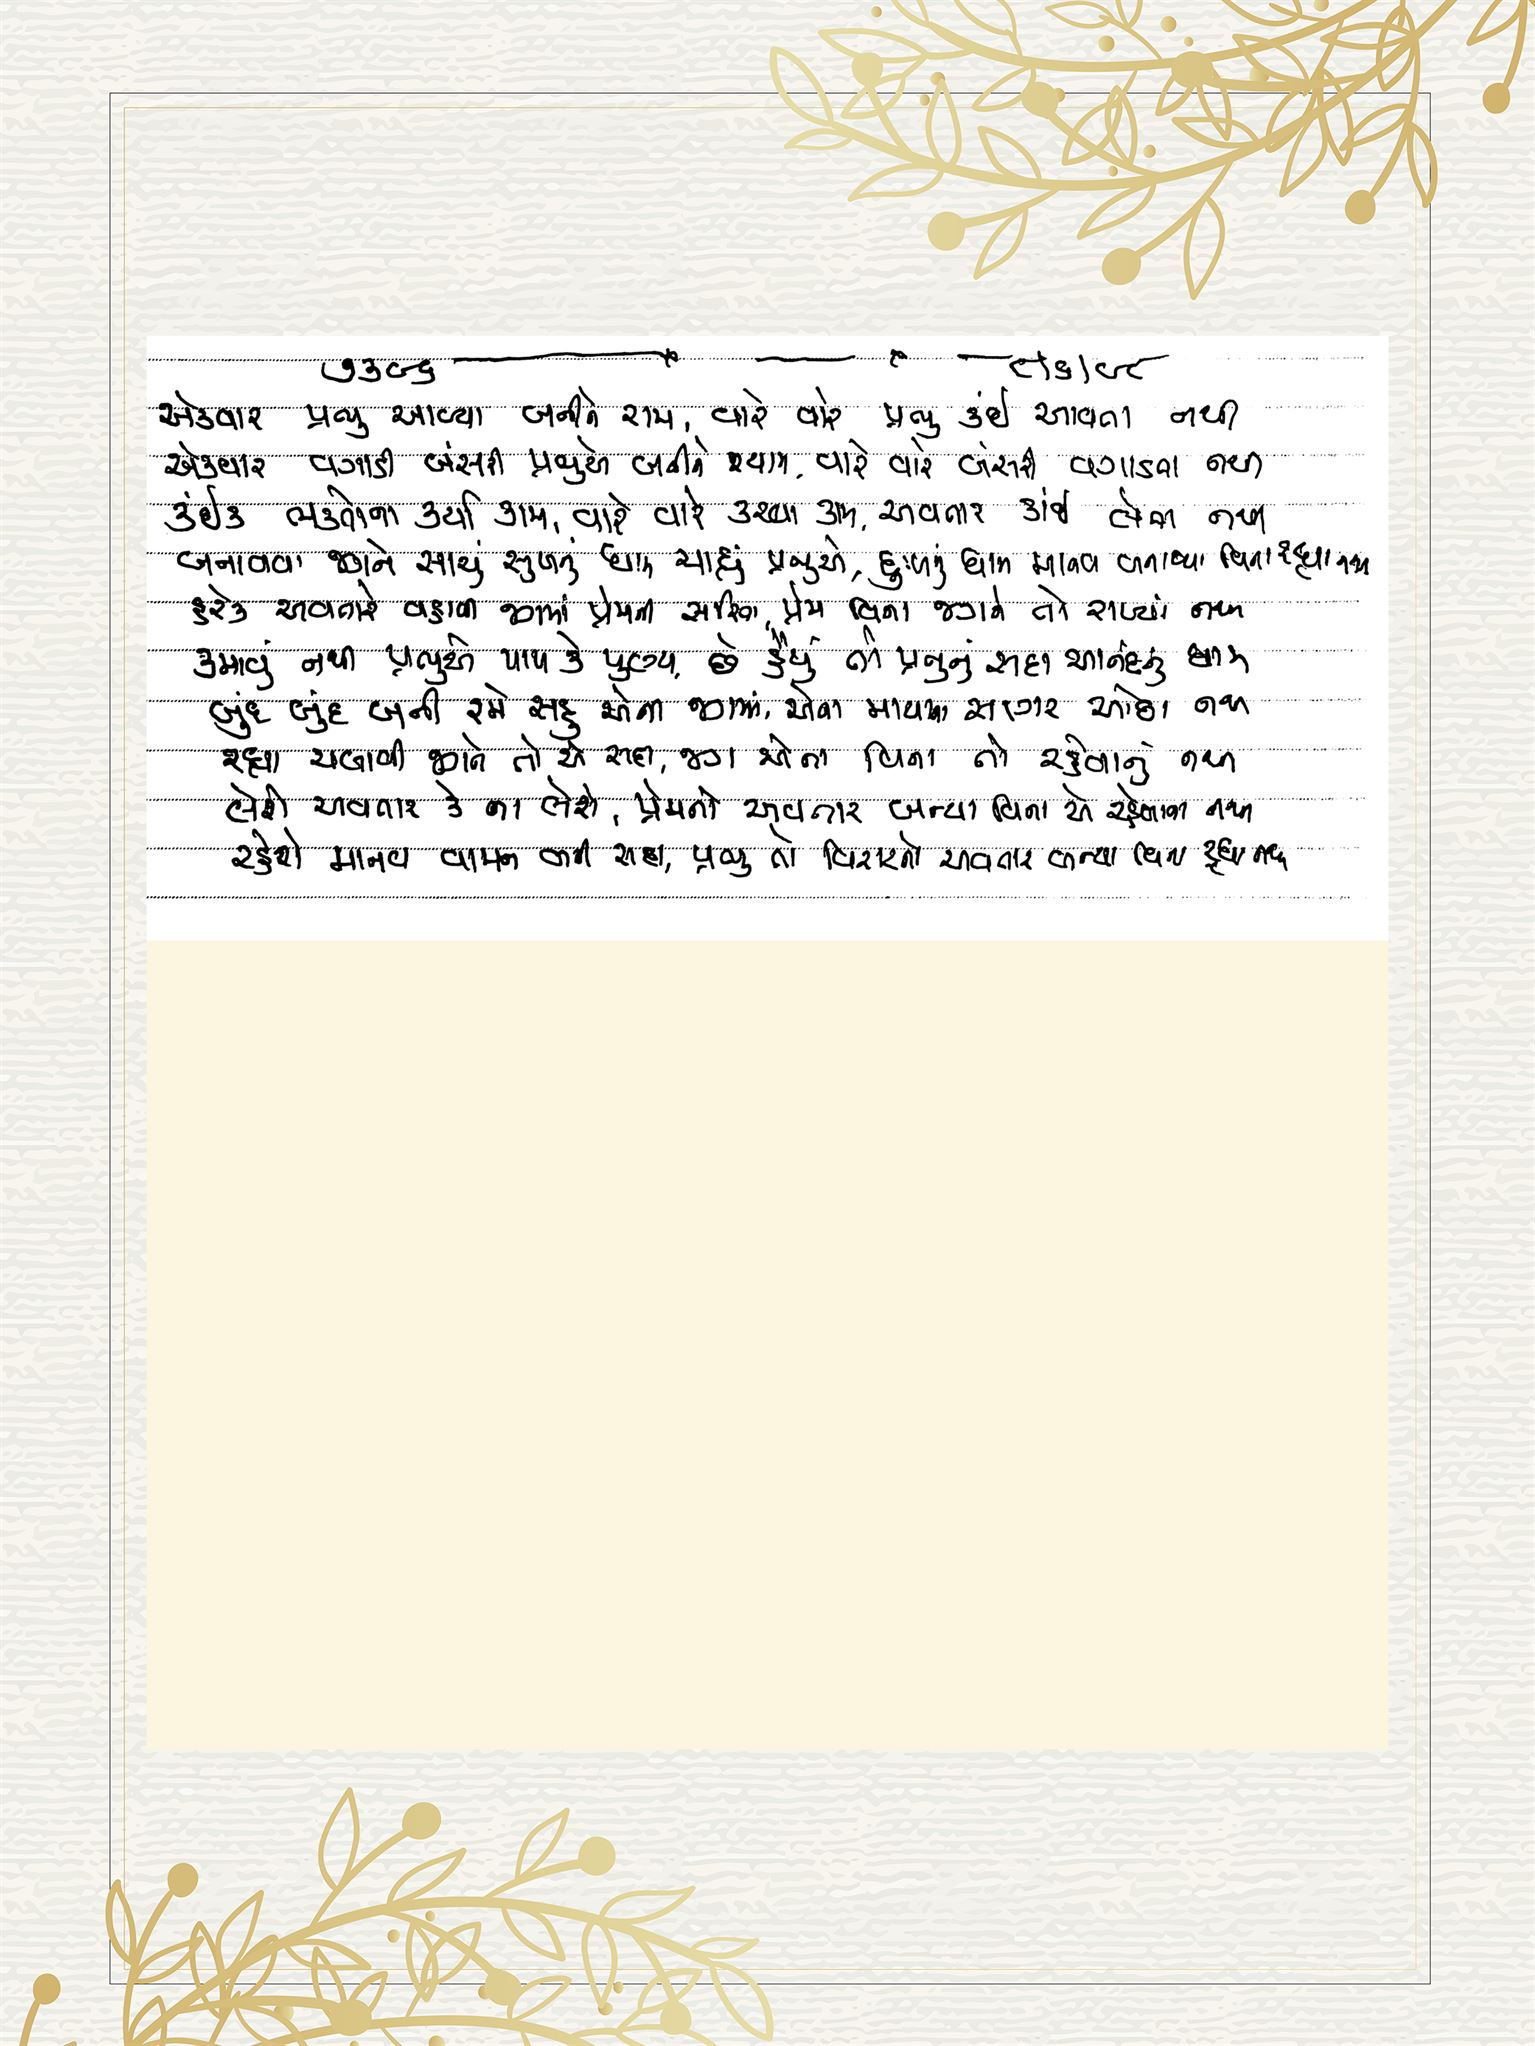 ૭૩૯૬ ૯/૬/૯૮
એકવાર પ્રભુ આવ્યા બનીને રામ, વારે વારે પ્રભુ કંઈ આવતા નથી
એકવાર વગાડી બંસરી પ્રભુએ બનીને શ્યામ, વારે વારે બંસરી વગાડતા નથી
કંઈક ભક્તોના કર્યા કામ, વારે વારે કરવા કામ, અવતાર કાંઈ લેતા નથી
બનાવવા જગને સાચું સુખનું ધામ ચાહ્યું પ્રભુએ, દુઃખનું ધામ માનવ બનાવ્યા વિના રહ્યા નથી
દરેક અવતારે વહાવી જગમાં પ્રેમની સરિતા, પ્રેમ વિના જગને તો રાખ્યાં નથી
કમાવું નથી પ્રભુએ પાપ કે પુણ્ય, છે હૈયું તો પ્રભુનું સદા આનંદનું ધામ
બુંદ બુંદ બની રમે સહુ એના જગમાં, એવા માયાના સાગર ઓછા નથી
રહ્યા ચલાવી જગને તો એ સદા, જગ એના વિના તો રહેવાનું નથી
લેશે અવતાર કે ના લેશે, પ્રેમનો અવતાર બન્યા વિના એ રહેવાના નથી
રહેશે માનવ વામન બની સદા, પ્રભુ તો વિરાટનો અવતાર બન્યા વિના રહ્યા નથી